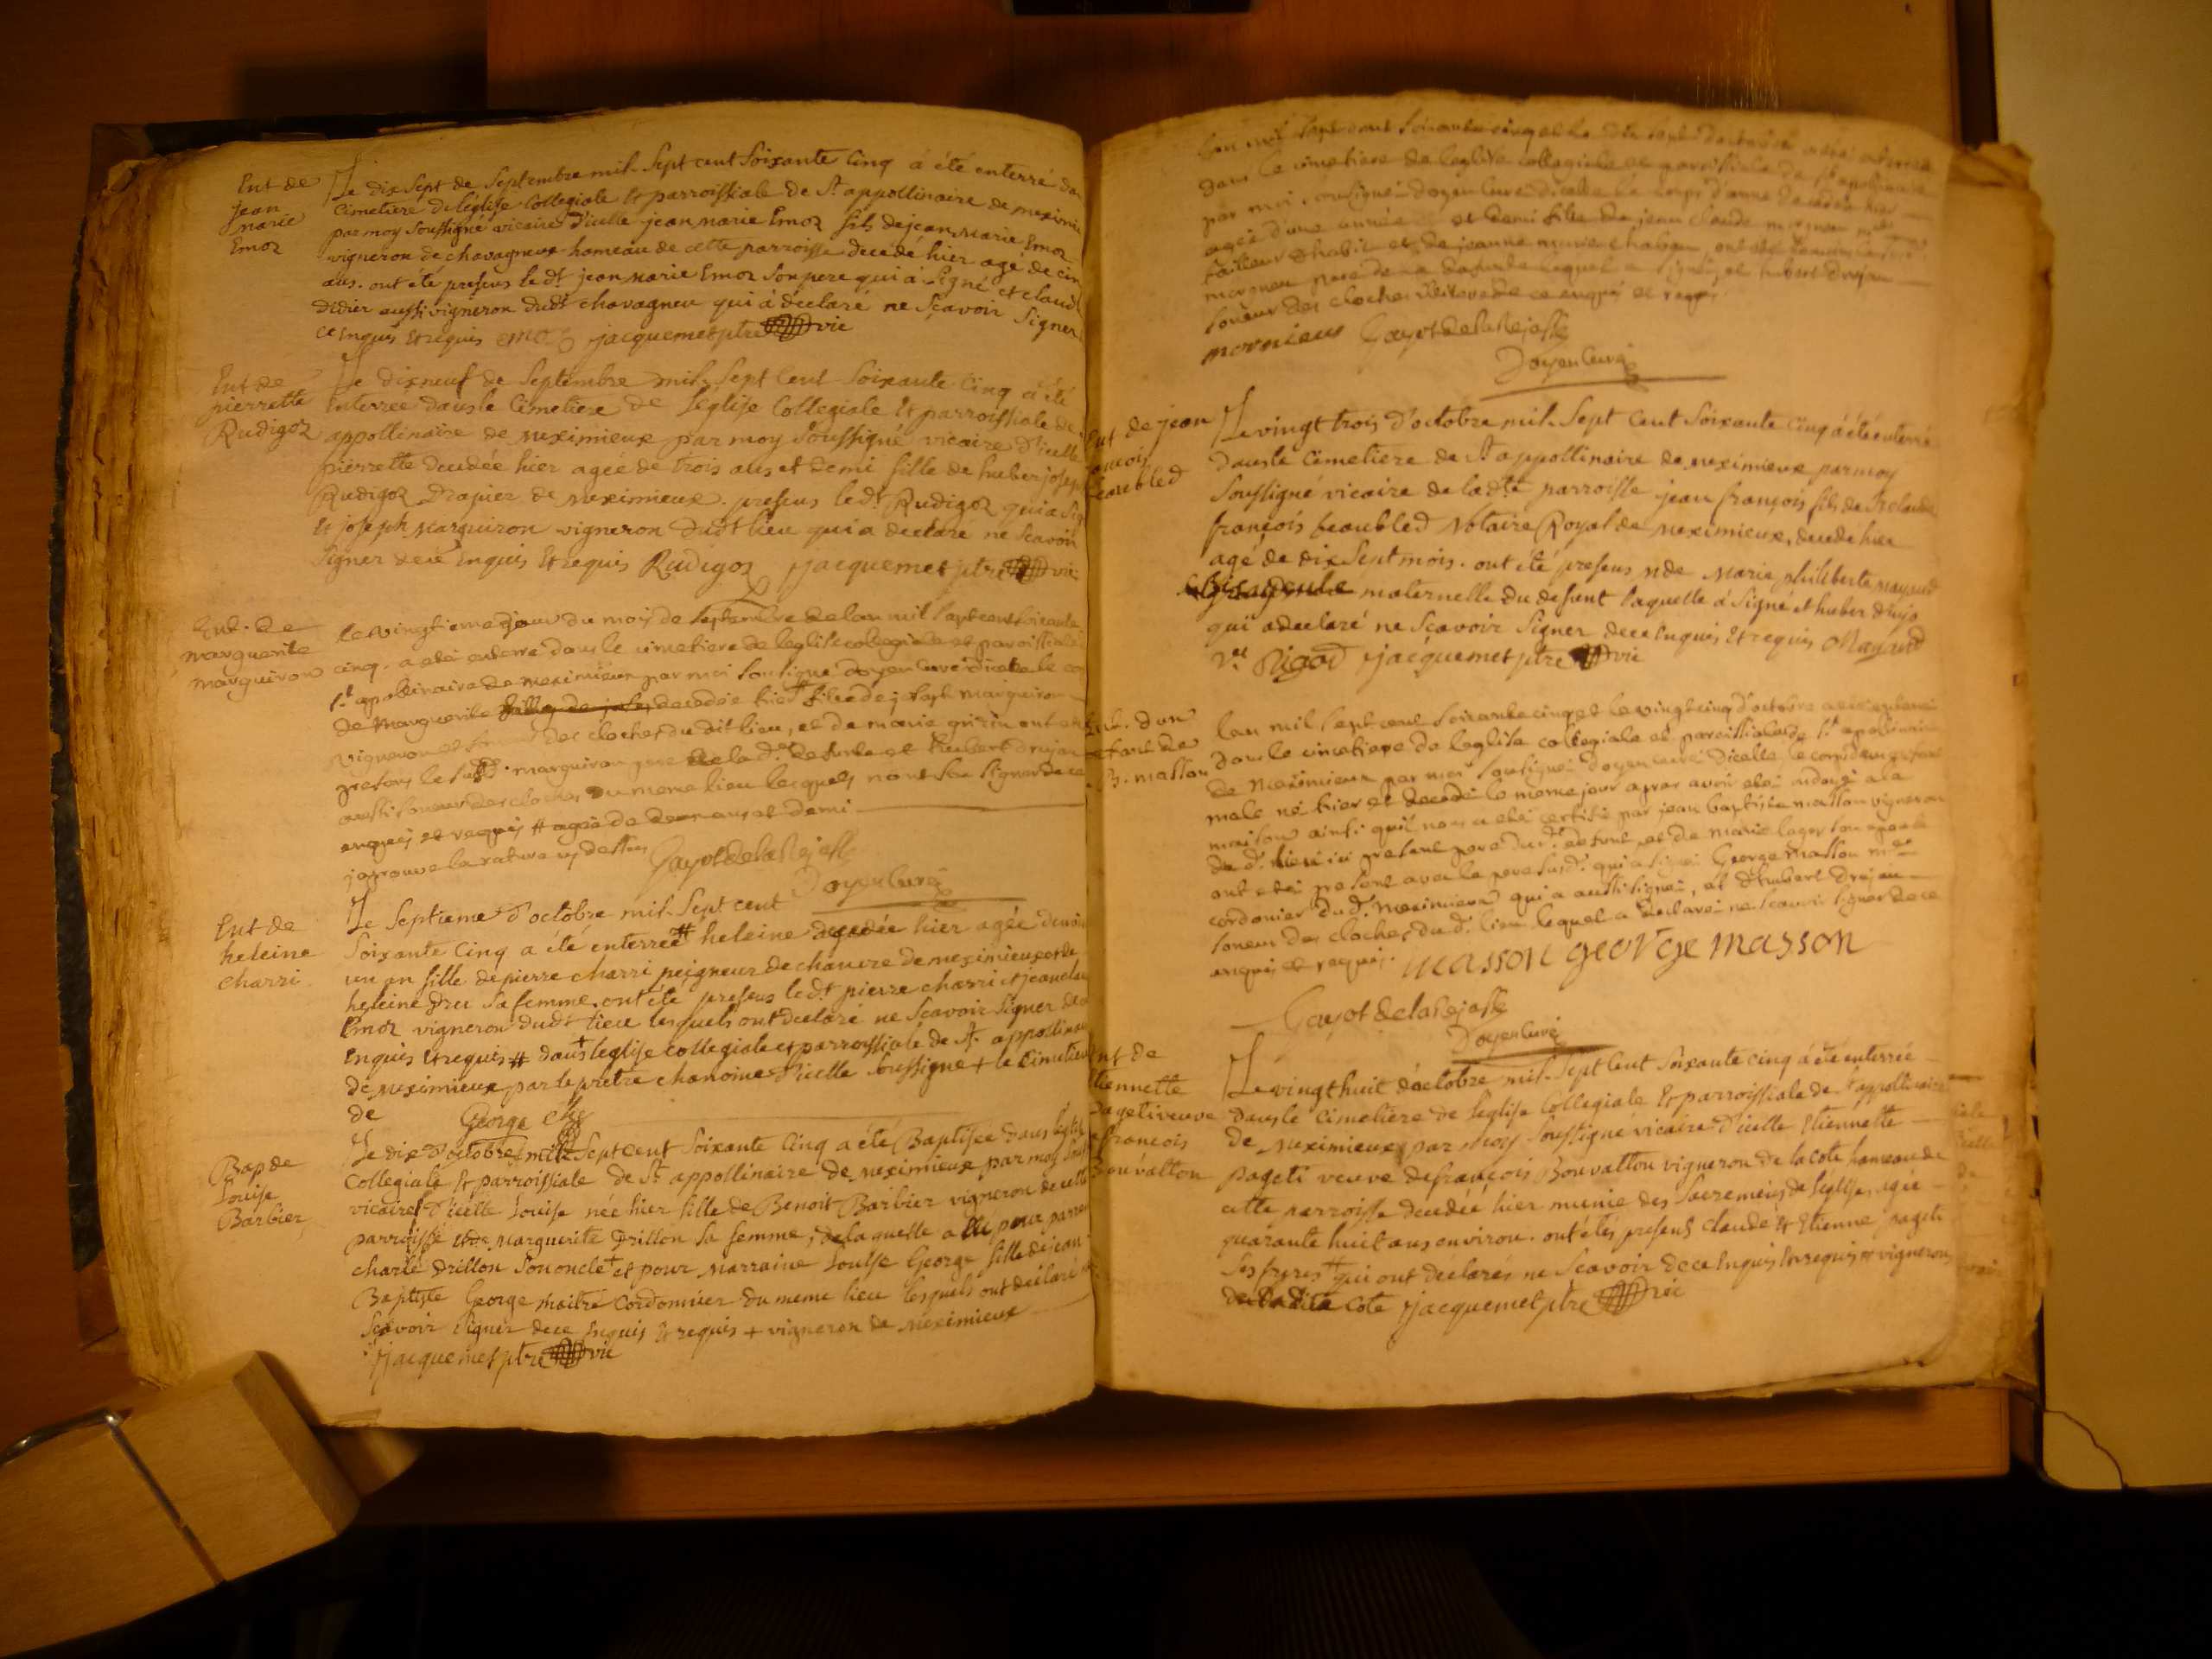 Ent de
jean
marie
Emoz
Le dix sept de Septembre mil Sept cent Soixante Cinq á été enterré dan
Cimetiere de leglise Collegiale Et parroissiale De St appollinaire de meximie
par moy Soussigné vicaire d'icelle jean marie Emoz fils de jean marie Emoz
vigneron de chavagneux hameau de cette parroisse decedé hier agé de cin
ans. ont été presens le dt jean marie Emoz Son pere qui à Signé et claud
didier aussi vigneron dudt chavagneu qui á déclaré ne Sçavoir Signer
ce Enquis Et requis Emoz jacquemet ptre vic
Ent de
pierrette
Rudigoz
Le dixneuf de Septembre mil Sept Cent Soixante Cinq a été
Enterrée dans le Cimetiere de Leglise Collegiale Et parroissiale de
appollinaire de meximieux par moy Soussigné vicaire d'icelle
pierrette decedée hier agée de trois ans et demi fille de huber josep
Rudigoz Drapier de meximieux. presens le dt Rudigoz qui a sig
Et joseph marguiron vigneron dudt lieu qui a declaré ne Scavoir
Signer de ce Enquis Et requis Rudigoz jacquemet ptre vic
Ent. de
marguerite
marguiron
le vingtieme jour du moy de septembre de lan mil sept cent soixante
cinq. a etei enterré dans le cimetiere de leglise collegiale et paroissiale
St apollinaire de meximieux par moi sousigné doyen curé dicelle le co
de marguerite decedée hier # fille de joseph marguiron
vigneron et des cloches du dit lieu, et de marie ont et
presens le susd. marguiron pere de la de defunte et hubert drujon
aussi soneur des cloches du meme lieu lesquels n'ont seu signer de ce
enquis et requis # agée de deux ans et demi
japrouve la rature cy dessus Gayot de la Rejasse
Doyen curé
Ent de
heleine
charri
Le Septieme d'octobre mil Sept cent
Soixante Cinq a été enterrée # heleine decedée hier agée denvir
un an fille de pierre charri peigneur de chanvre de meximieux et de
heleine Dru Sa femme. ont été presens le dt pierre charri et jean clau
Emoz vigneron dudt lieu lesquels ont declaré ne Scavoir Signer de c
Enquis Et requis # dans + leglise collegiale et parroissiale de St. appollinai
de meximieux par le prêtre chanoine d'icelle Soussigné + le Cimetiere
de George
Bap de
Louise
Barbier
Le dix d'octobre mil Sept Cent Soixante Cinq a été Baptisée dans leglise
Collegiale Et parroissiale de St appollinaire de meximieux par moy Sous
vicaire d'icelle Louise née hier fille de Benoit Barbier vigneron de cette
parroisse Et de marguerite Drillon Sa femme, de laquelle a été pour parrei
charle Drillon Son oncle + et pour marraine Louise George fille de jean
Baptiste George maitre Cordonnier du meme lieu lesquels ont déclaré
Sçavoir Signer de ce Enquis Et requis + vigneron de meximieux
jacquemet ptre vic
lan mil sept cent soixante cinq et le dix sept doctobre a etei enterrée
dans le cimetiere de leglise collegiale et paroissiale de St apolinaire
par moi sousigné doyen curé dicelle le corps d'anne decedée hier
agée d'une année et demi fille de jean claude mornieu
tailleur d'habit et de jeanne marie chabou, ont été temoins le
mornieu pere de la defunte lequel a signé, et hubert drujon
soneur des cloches de ce enquis et requis.
mornieu Gayot de la Rejasse
Doyen Curé
Ent de jean
françois
beaubled
Le vingt trois d'octobre mil Sept Cent Soixante Cinq á été enterré
dans le Cimetiere de St appollinaire de meximieux par moy
Soussigné vicaire de la dte parroisse jean françois fils de Sr claude
françois beaubled Notaire Royal de meximieux, decedé hier
agé de dix Sept mois. ont été presens Mde Marie philiberte mayaud
maternelle du defunt laquelle á Signé et huber drujo
qui a declaré ne Scavoir Signer de ce Enquis Et requis Mayaud
ve Rigod jacquemet ptre vic
Ent. d'un
enfant de
B. masson
lan mil sept cent soixante cinq et le vingt cinq doctobre a etei enterré
dans le cimetiere de leglise collegiale et paroissiale de St apolinaire
de meximieux par moi sousigné doyen curé dicelle, le corps d'un enfant
male né hier et decedé le meme jour apres avoir etei ondoyé a la
maison ainsi quil nous a etei certifié par jean baptiste masson vigneron
du d. lieu ici present pere du d. defunt et de marie lager son epouse
ont etei present avec le pere susd. qui a signé George masson me
cordonier du d. meximieux qui a aussi signé, et d'hubert drujon
soneur des cloches du d. lieu lequel a declaré ne scavoir signer de ce
enquis et requis. masson george masson
Gayot de la Rejasse
Doyen Curé
Ent de
Etiennette
Pageti veuve
de francois
Bonvallon
Le vingt huit d'octobre mil Sept Cent Soixante Cinq á été enterrée
dans le Cimetiere de leglise Collegiale Et parroissiale de St appollinaire
de meximieux par moy Soussigné vicaire d'icelle Etiennette
pageti veuve de françois Bonvallon vigneron de la cote hameau de
cette parroisse decedée hier munie des Sacremens de leglise, agée
quarante huit ans environ. ont étés presens claude Et Etienne pageti
Ses freres # qui ont declarés ne Scavoir de ce Enquis Et requis # vignerons
de la dite Cote jacquemet ptre vic